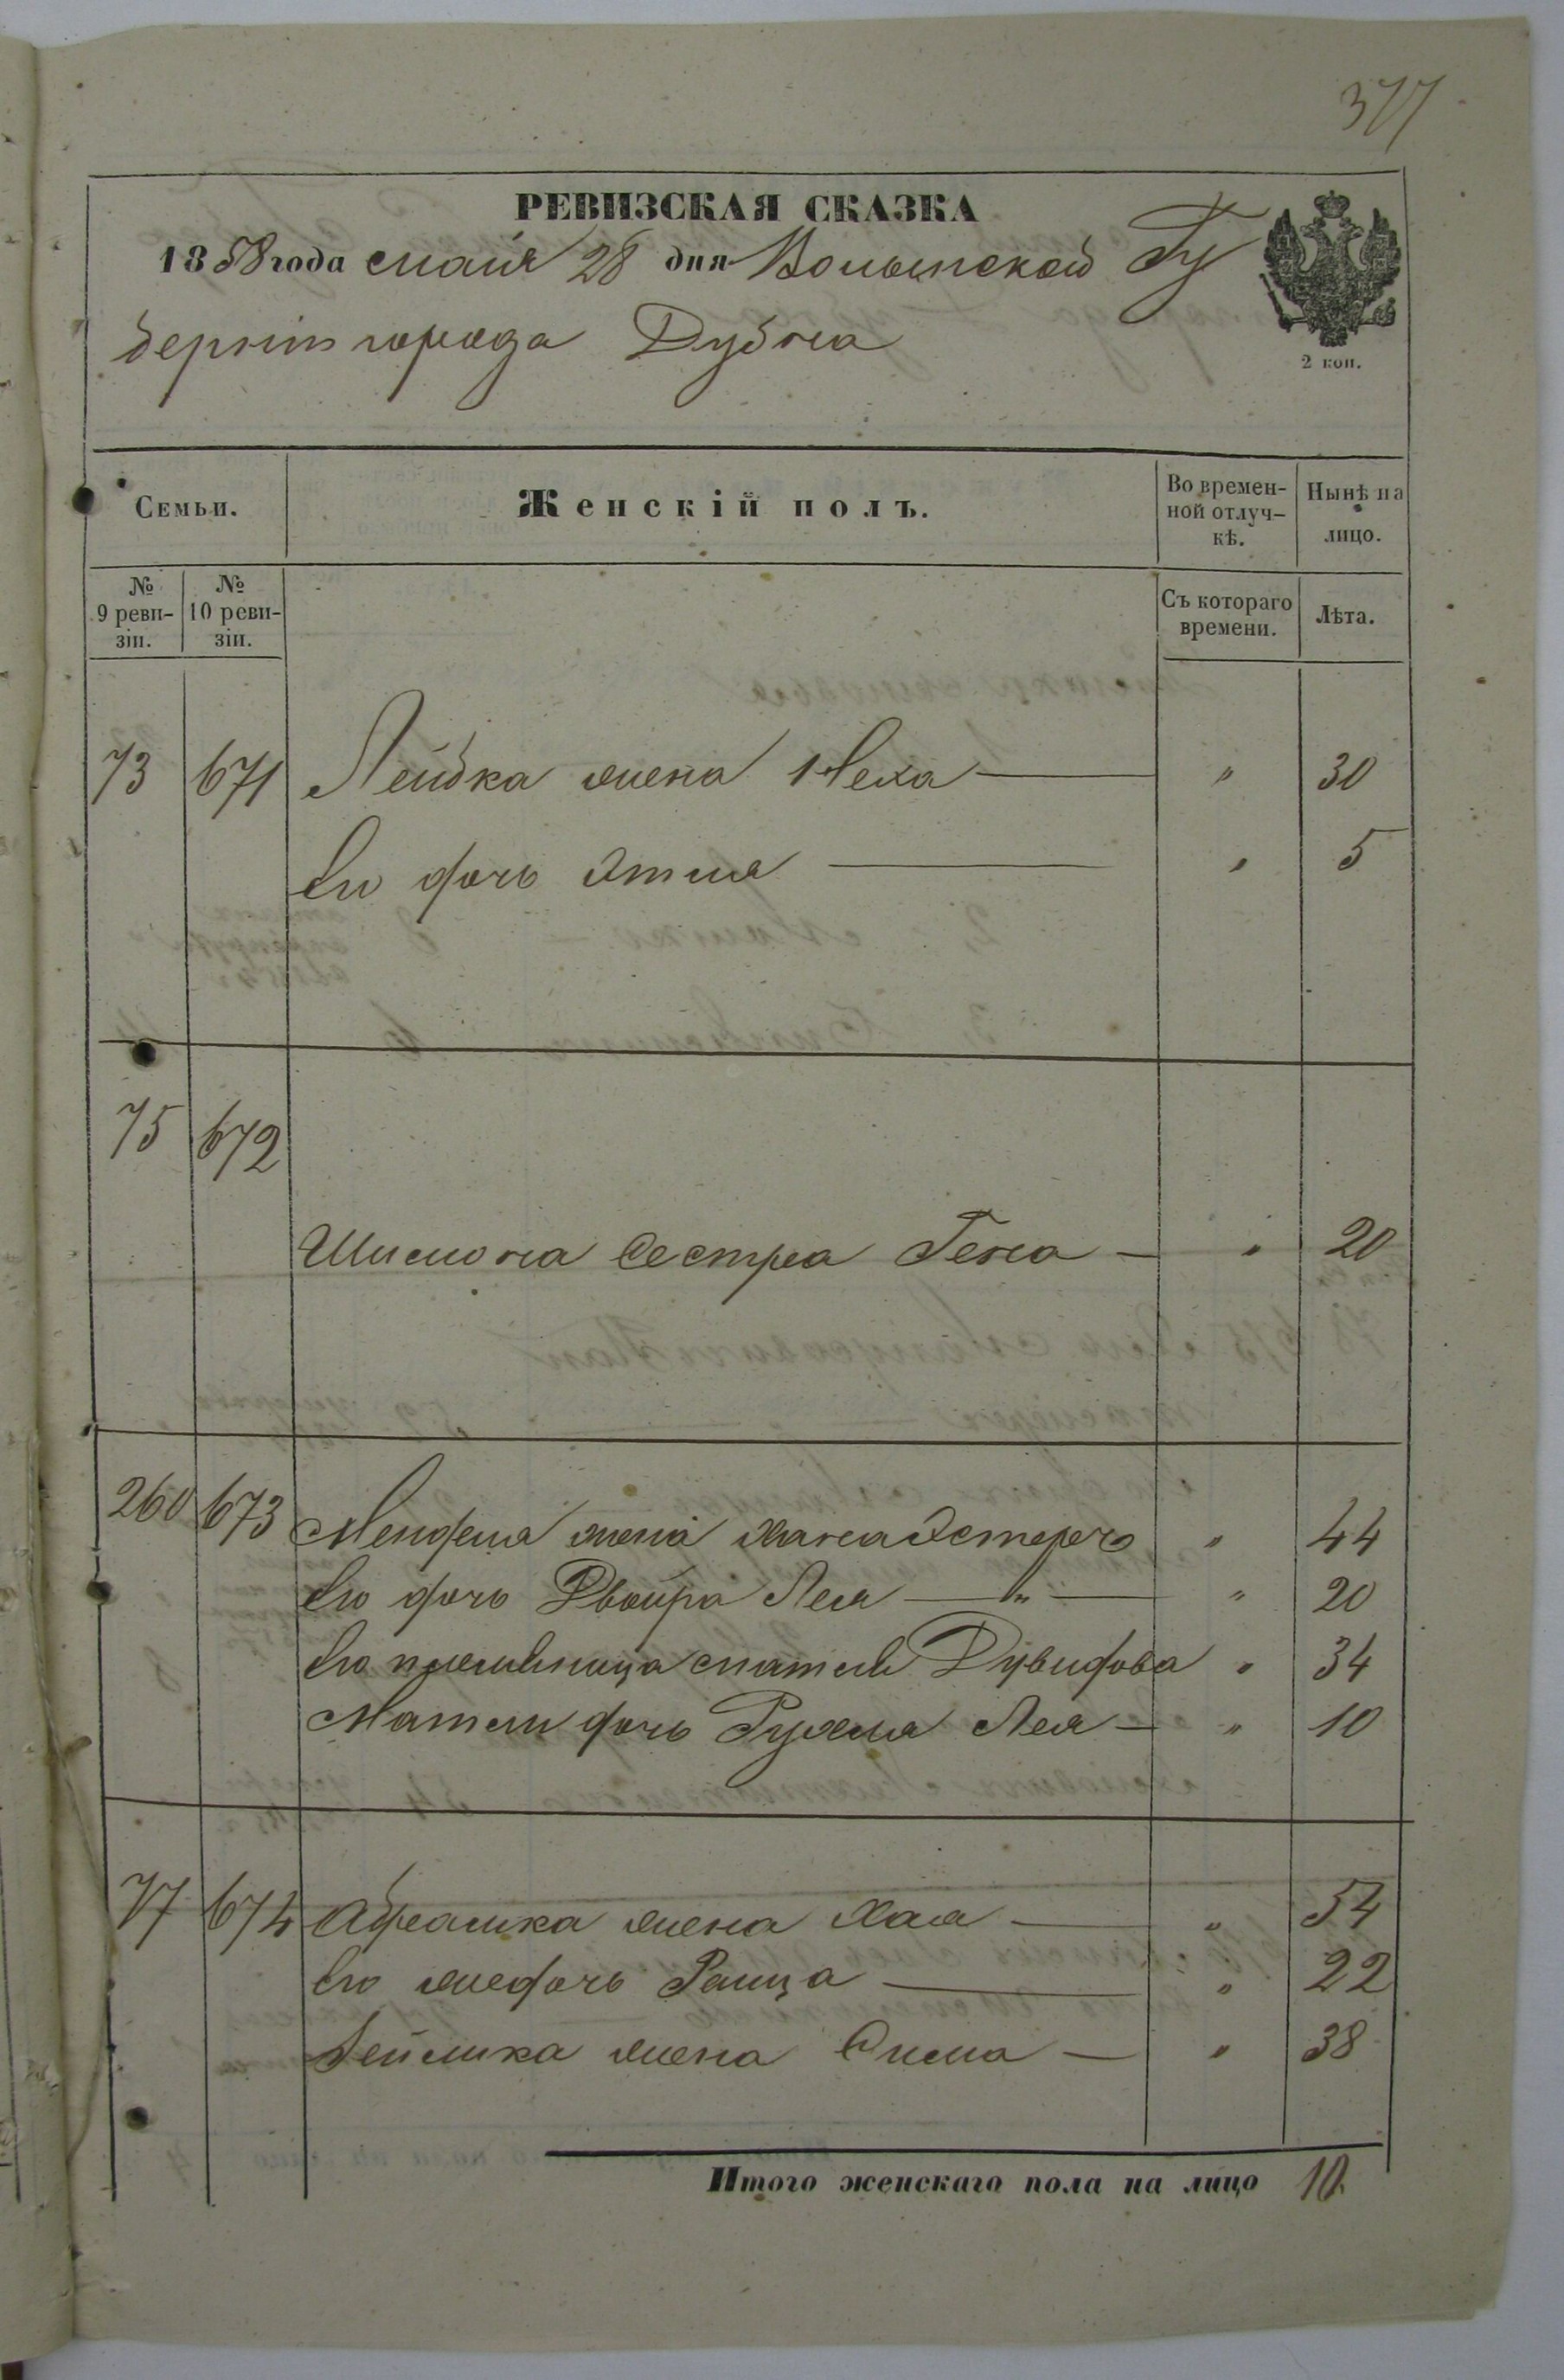 377
РЕВИЗСКАЯ СКАЗКА
1858 года маiя 28 дня Волынской Гу
бернiи города Дубна
2 коп.
Семьи.
Женскiй полъ.
Во времен-
ной отлуч-
кѣ.
Нынѣ на
лицо.
№
9 реви-
зiи.
№
10 реви-
зiи.
Съ котораго
времени.
Лѣта.
73 671 Лейбка жена Неха — " 30
Его дочь Этля — " 5
75 672
Шлиомона Сестра Гена — " 20
260 673 Менделя жена Хана Эстеръ " 44
Его дочь Двойра Лея — " — " 20
Его племенница Матля Дувидова " 34
Матли дочь Рухля Лея — " 10
77 674 Абрамка жена Хая — " 54
Его же дочь Раица — " 22
Лейзика жена Сима — " 38
Итого женскаго пола на лицо 10.